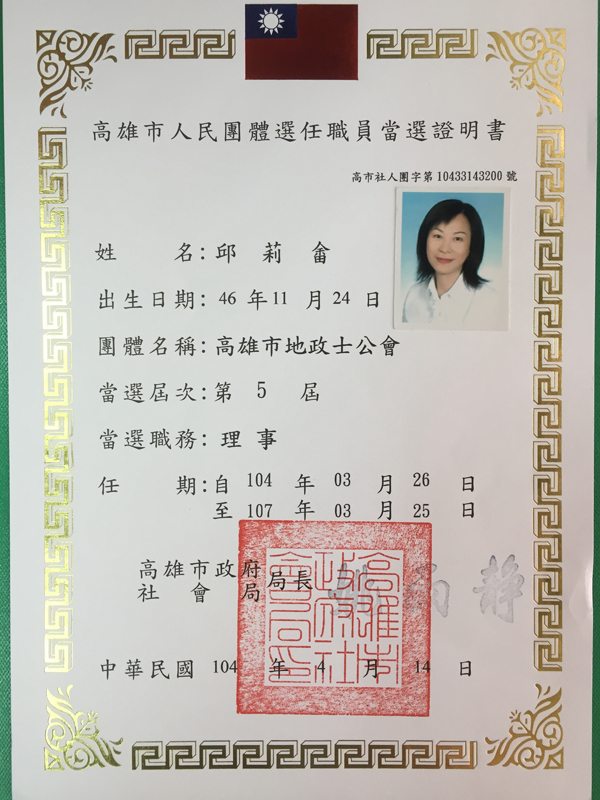 高雄市人民團體選任職員當選證明書
高市社人團字第 10433143200 號
姓名：邱莉畬
出生日期：46 年 11 月 24 日
團體名稱：高雄市地政士公會
當選屆次：第 5 屆
當選職務：理事
任期：自 104 年 03 月 26 日
至 107 年 03 月 25 日
高雄市政府
社會局
局長
中華民國 104 年 4 月 14 日
高雄市
政府社
會局印